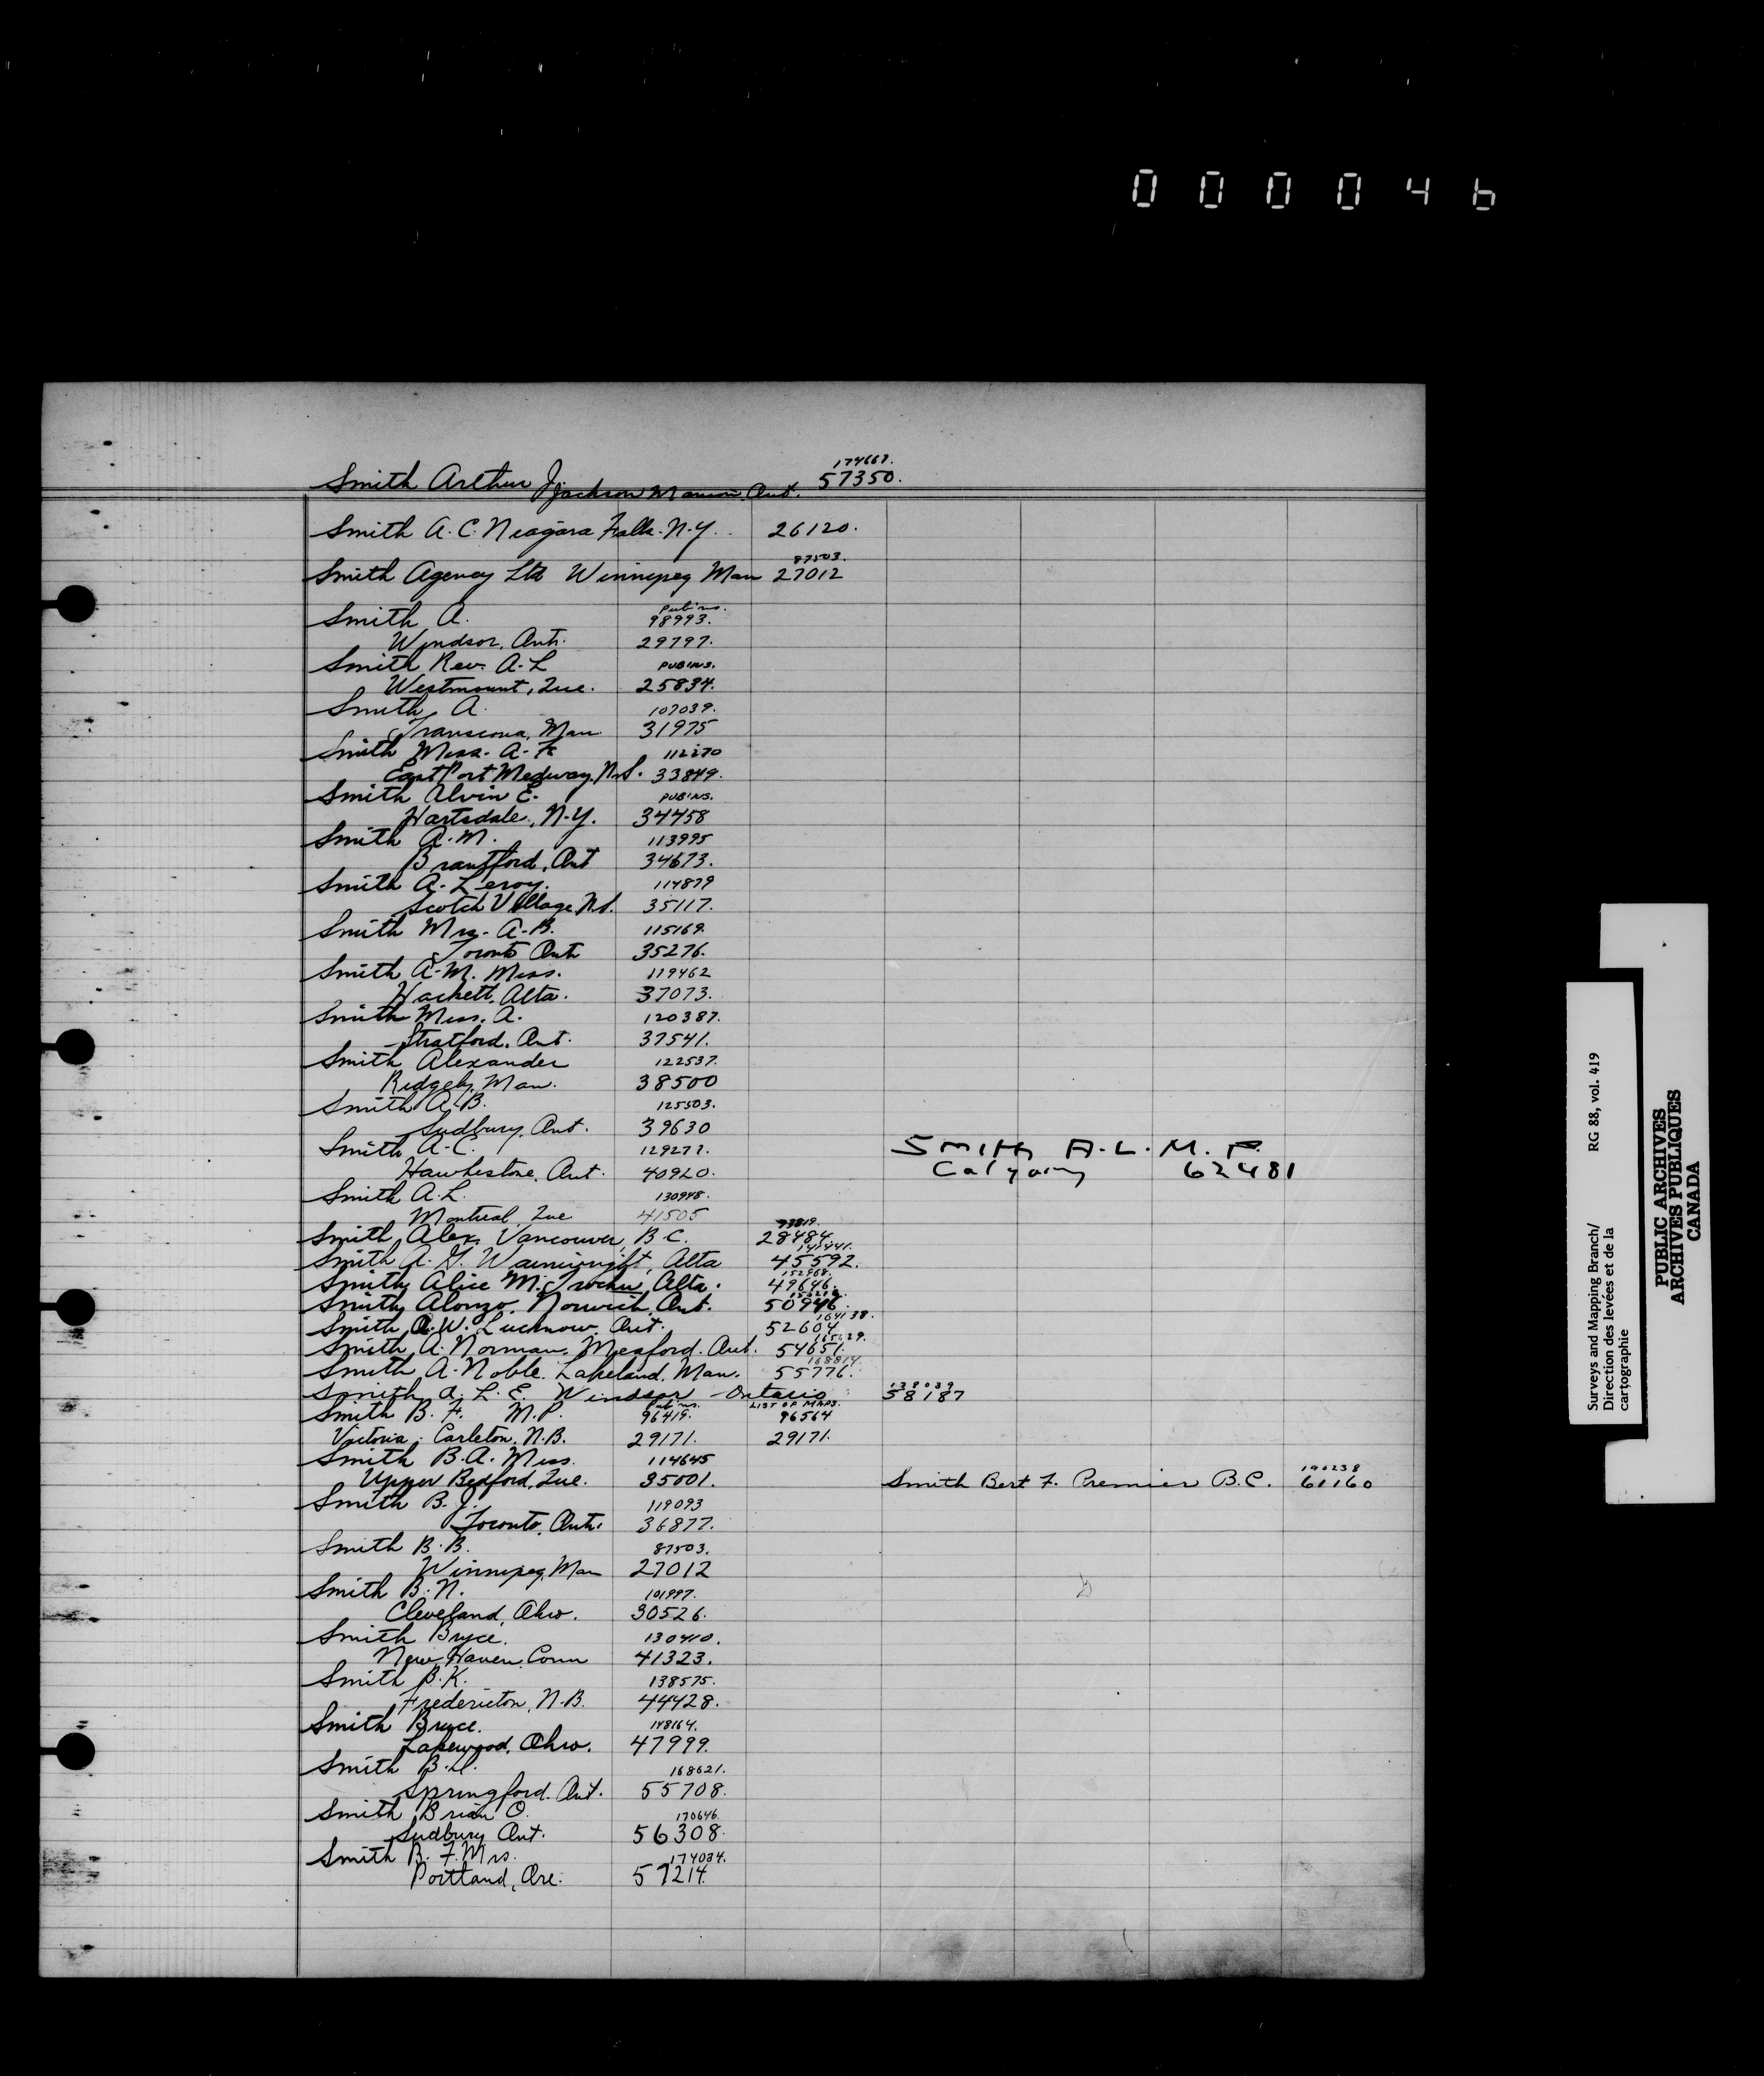 000046
174667.
Smith Arthur J. Jackson Manion, Ont. 57350.
Smith A. C. Niagara Falls. N.Y. 26120.
87503.
Smith Agency Ltd Winnipeg Man 27012
Pub'ns.
Smith A. 98993.
Windsor, Ont. 29797.
Smith Rev. A. L PUB'NS.
Westmount, Que. 25834.
Smith, A. 107039.
Transcona, Man. 31975
Smith Miss. A. 112270
East Port Medway, N.S. 33849.
Smith Alvin E. PUB'NS.
Hartsdale, N.Y. 34458
Smith A. M. 113995
Brantford, Ont 34673.
Smith A. Leroy. 114879
Scotch Village N.S. 35117.
Smith Mrs. A. B. 115169.
Toronto Ont 35276.
Smith A. M. Miss. 119462
Hackett, Alta. 37073.
Smith Miss. A. 120387.
Stratford, Ont. 37541.
Smith Alexander 122537.
Ridgely, Man. 38500
Smith A. B. 125503.
Sudbury, Ont. 39630
Smith A. C. 129277.
SMITH A. L. M. P.
Hawkestone, Ont. 40920.
Calgary 62481
Smith A. L. 130948.
Montreal, Que 41505
93819.
Smith, Alex, Vancouver, B.C. 28484.
Smith A. G. Wainwright, Alta 45592.
Smith, Alice M. Trochu, Alta. 49646.
Smith, Alonzo. Norwich, Ont. 50946
164138.
Smith, A. W. Lucknow, Ont. 52604.
Smith, A. Norman. Meaford. Ont. 54651.
168814.
Smith, A. Noble. Lakeland, Man. 55776.
Smith A. L. E. Windsor - Ontario 58187
Pub'ns. LIST OF MAPS.
Smith B. F. M.P. 96419. 96564
Victoria - Carleton, N.B. 29171. 29171.
Smith B. A. Miss. 114645
190238
Upper Bedford, Que. 35001.
Smith Bert F. Premier B.C. 61160
Smith B. J. 119093
Toronto, Ont. 36877.
Smith B. B. 87503.
Winnipeg, Man 27012
Smith B. N. 101997.
Cleveland, Ohio. 30526.
Smith Bryce. 130410.
New Haven, Conn 41323.
Smith B. K. 138575.
Fredericton, N.B. 44428.
Smith Bruce. 148164.
Lakewood, Ohio. 47999.
Smith B. 168621.
Springford, Ont. 55708.
Smith, Brian O. 170646.
Sudbury Ont. 56308.
Smith B. F. Mrs. 174034.
Portland, Ore. 57214.
Surveys and Mapping Branch/ RG 88, vol. 419
Direction des levées et de la
cartographie
PUBLIC ARCHIVES
ARCHIVES PUBLIQUES
CANADA